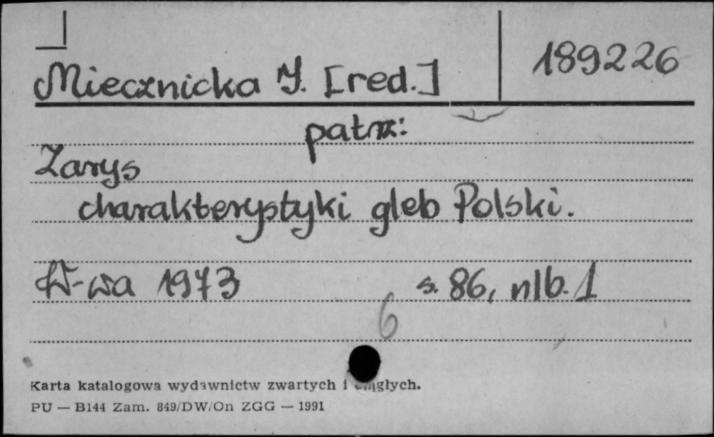 Miecznicka J. [red.] 189226
patrz:
Zarys
charakterystyki gleb Polski.
W-wa 1973 s. 86, nlb. 1
6
Karta katalogowa wydawnictw zwartych i ciągłych.
PU — B144 Zam. 849/DW/On ZGG — 1991